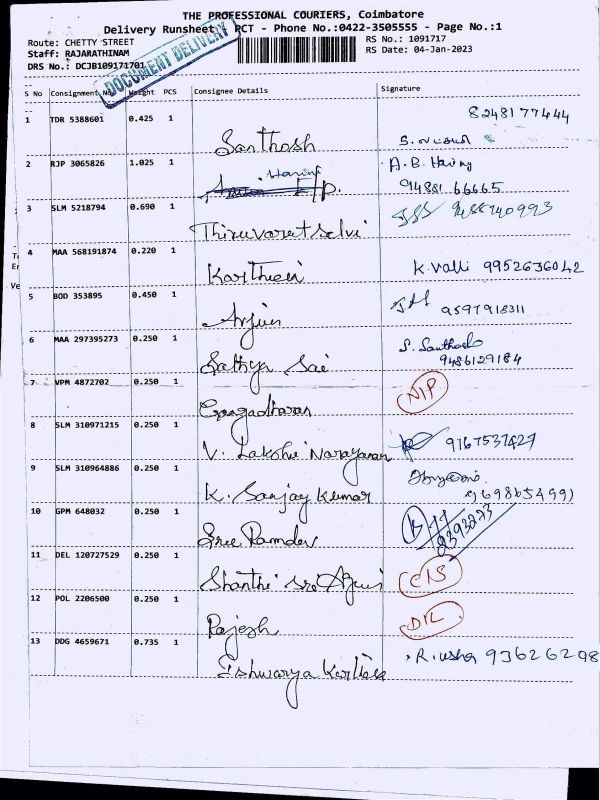 THE PROFESSIONAL COURIERS, Coimbatore
Delivery Runsheet PCT - Phone No.:0422-3505555 - Page No.:1
Route: CHETTY STREET
RS No.: 1091717
Staff: RAJARATHINAM
RS Date: 04-Jan-2023
DRS No.: DCJB109171701
DOCUMENT DELIVERY
S No Consignment No Weight PCS Consignee Details Signature
1 TDR 5388601 0.425 1 8248177444
Santhosh
2 RJP 3065826 1.025 1 A.B.
Harini
94881 66665
3 SLM 5218794 0.690 1
Thiruvarut Selvi
4 MAA 568191874 0.220 1
K. Valli 9952636042
5 BOD 353895 0.450 1
Arjun 9597918311
6 MAA 297395273 0.250 1 S. Santhosh
9486129184
Sathya Sai
7 VPM 4872702 0.250 1
Gangadharan
8 SLM 310971215 0.250 1
V. Lakshmi Narayanan 9167537427
9 SLM 310964886 0.250 1
K. Sanjay Kumar
10 GPM 648032 0.250 1
Sree Ramdev
11 DEL 120727529 0.250 1
Shanthi
12 POL 2206500 0.250 1
Rajesh
13 DDG 4659671 0.735 1
R. usha 93626298
Eshwarya